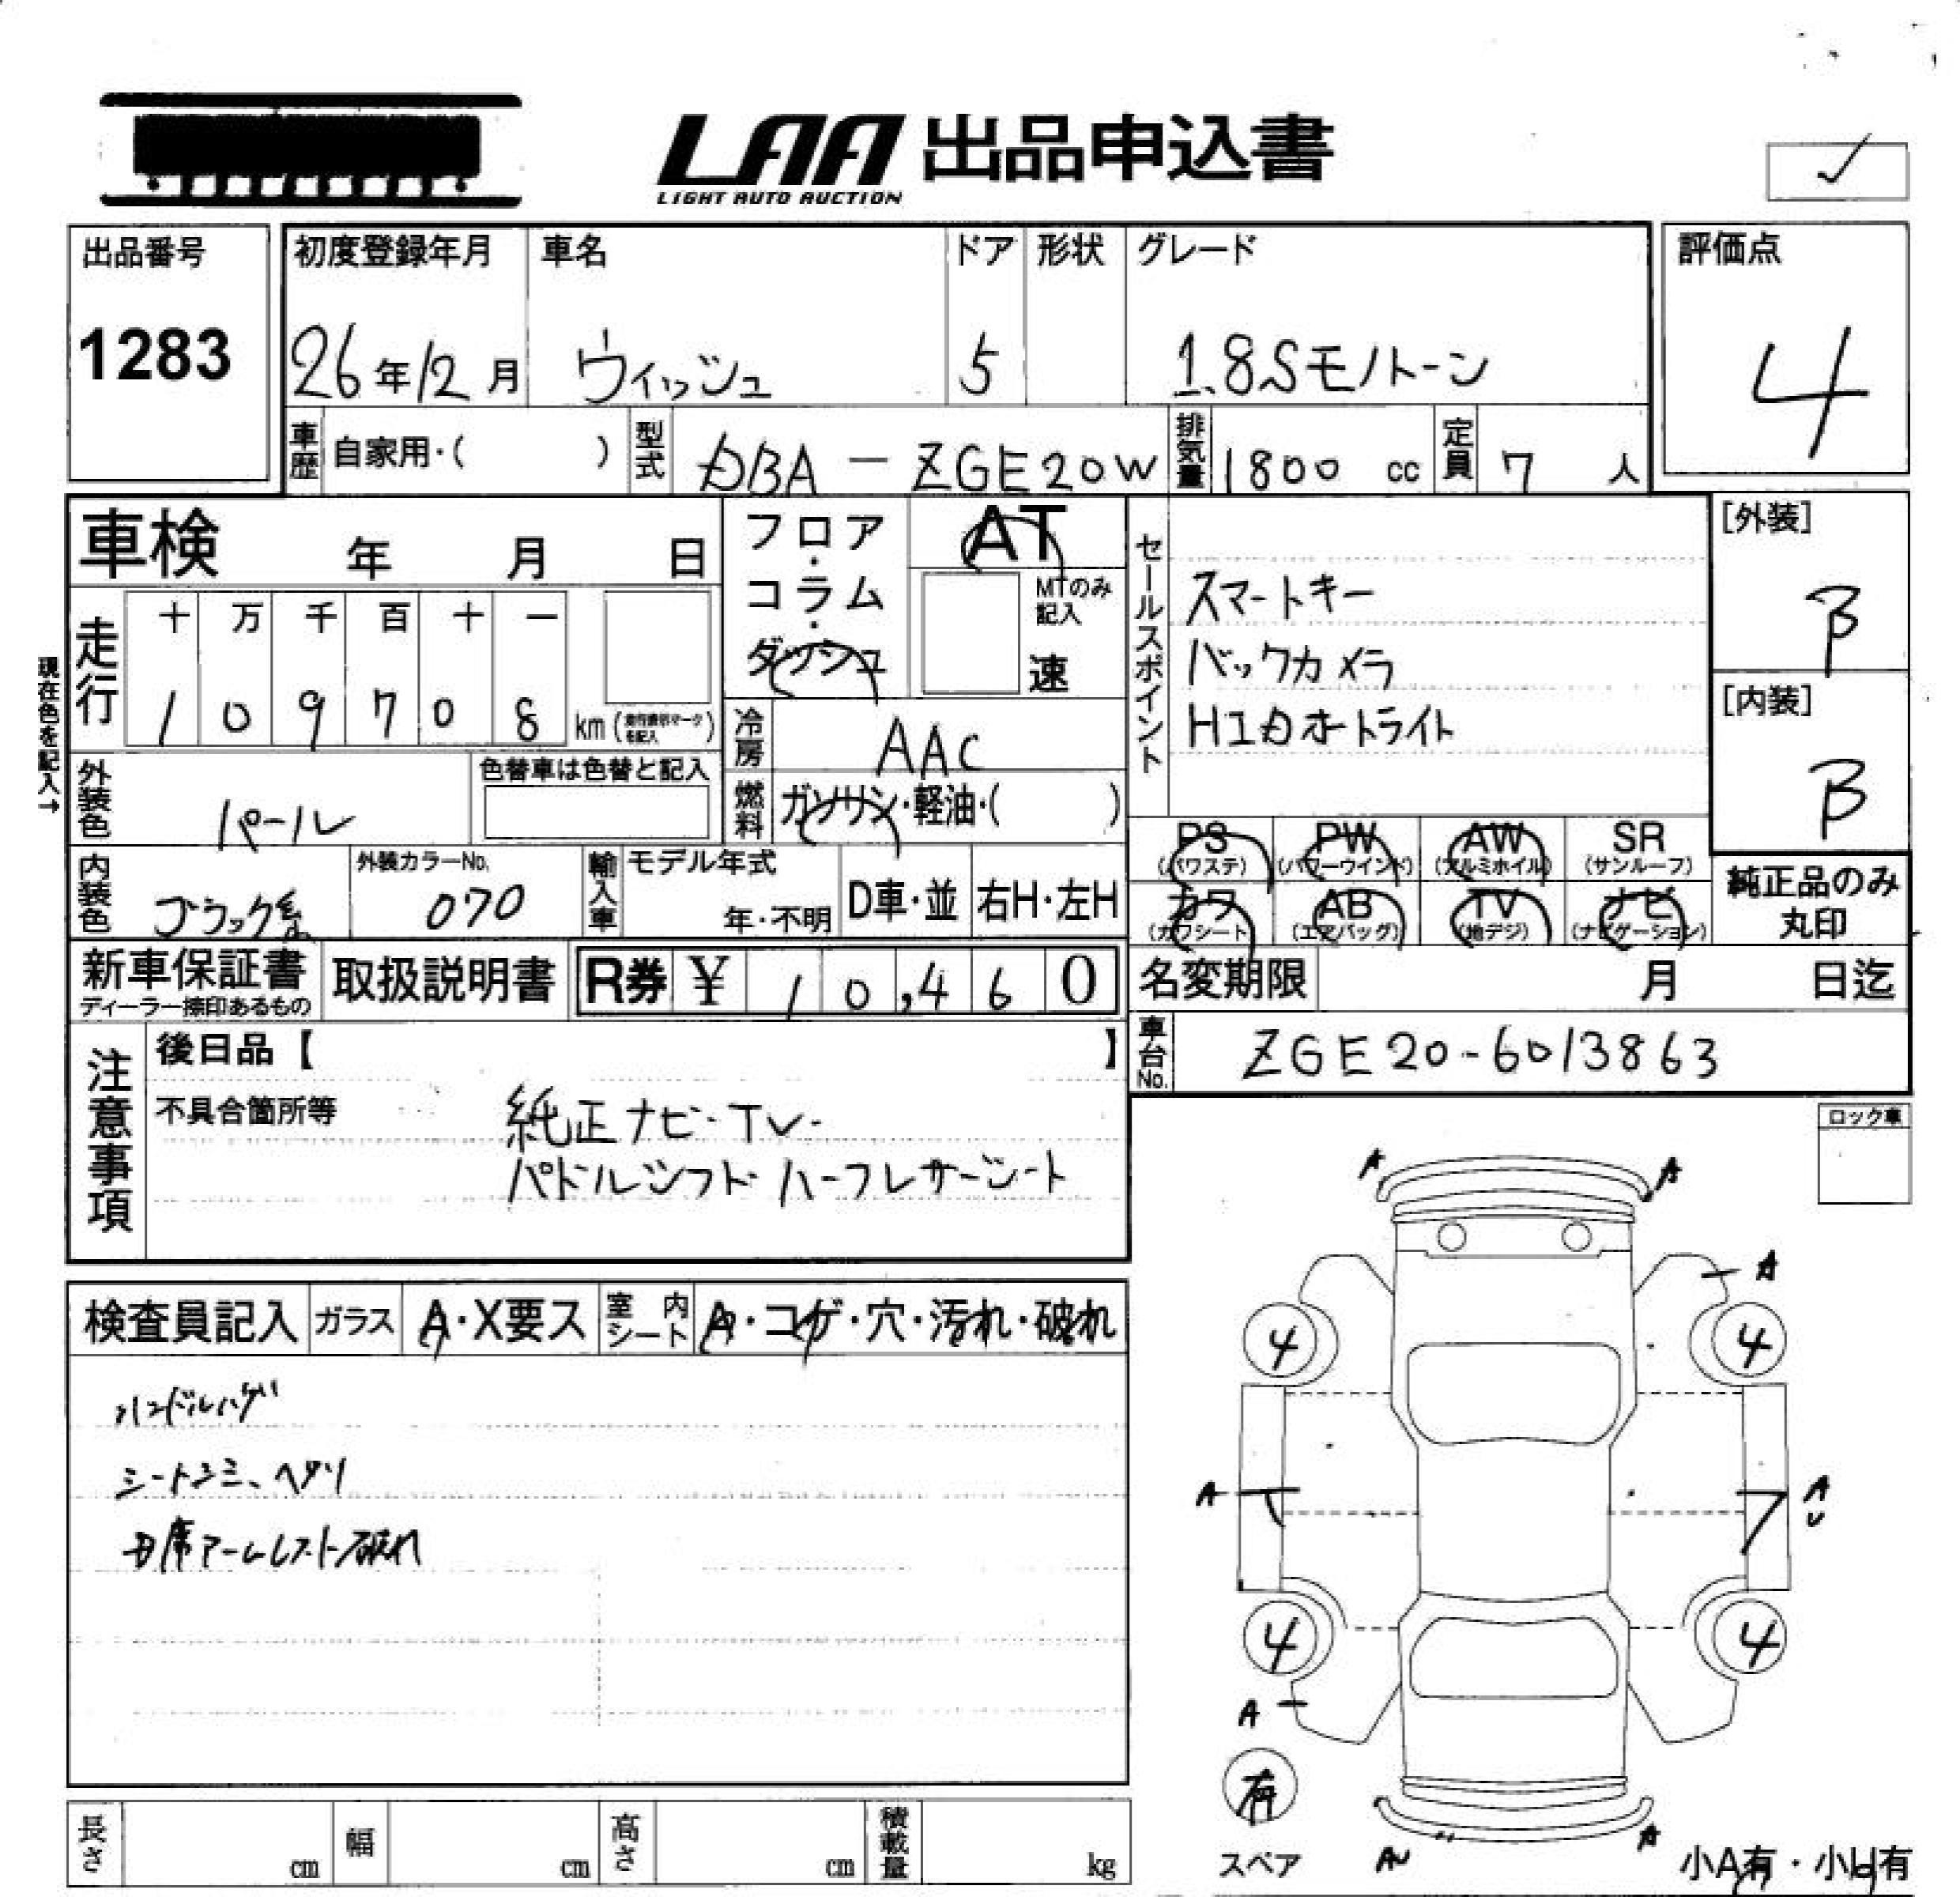 LAA 出品申込書
LIGHT AUTO AUCTION
✓
出品番号
1283
初度登録年月
26年12月
車名
ウィッシュ
ドア
5
形状
グレード
1.8Sモノトーン
評価点
4
車歴
自家用・( )
型式
DBA - ZGE20W
排気量
1800 cc
定員
7 人
車検 年 月 日
フロア・コラム・ダッシュ
AT
MTのみ記入
速
セールスポイント
スマートキー
バックカメラ
HIDホートライト
[外装]
B
[内装]
B
現在色を記入→
走行
十 万 千 百 十 一
1 0 9 7 0 8 km
冷房
AAC
燃料
ガソリン・軽油・( )
外装色
パール
色替車は色替と記入
内装色
ブラック系
外装カラーNo.
070
輸入車
モデル年式
年・不明
D車・並
右H・左H
PS (パワステ)
PW (パワーウインド)
AW (アルミホイル)
SR (サンルーフ)
カワ (カワシート)
AB (エアバッグ)
TV (地デジ)
ナビ (ナビゲーション)
純正品のみ丸印
新車保証書
ディーラー捺印あるもの
取扱説明書
R券 ¥ 10,460
名変期限 月 日迄
車台No.
ZGE20-6013863
注意事項
後日品【 】
不具合箇所等
純正ナビ・TV・
パドルシフト・ハーフレザーシート
ロック車
検査員記入
ガラス
A・X要ス
室内シート
A・コゲ・穴・汚れ・破れ
ハンドルハゲ
シートシミ、ヘタリ
D席アームレスト破れ
A A
A
4 4
A A U
4 4
A
有
スペア
AU A
小A有・小U有
長さ cm
幅 cm
高さ cm
積載量 kg